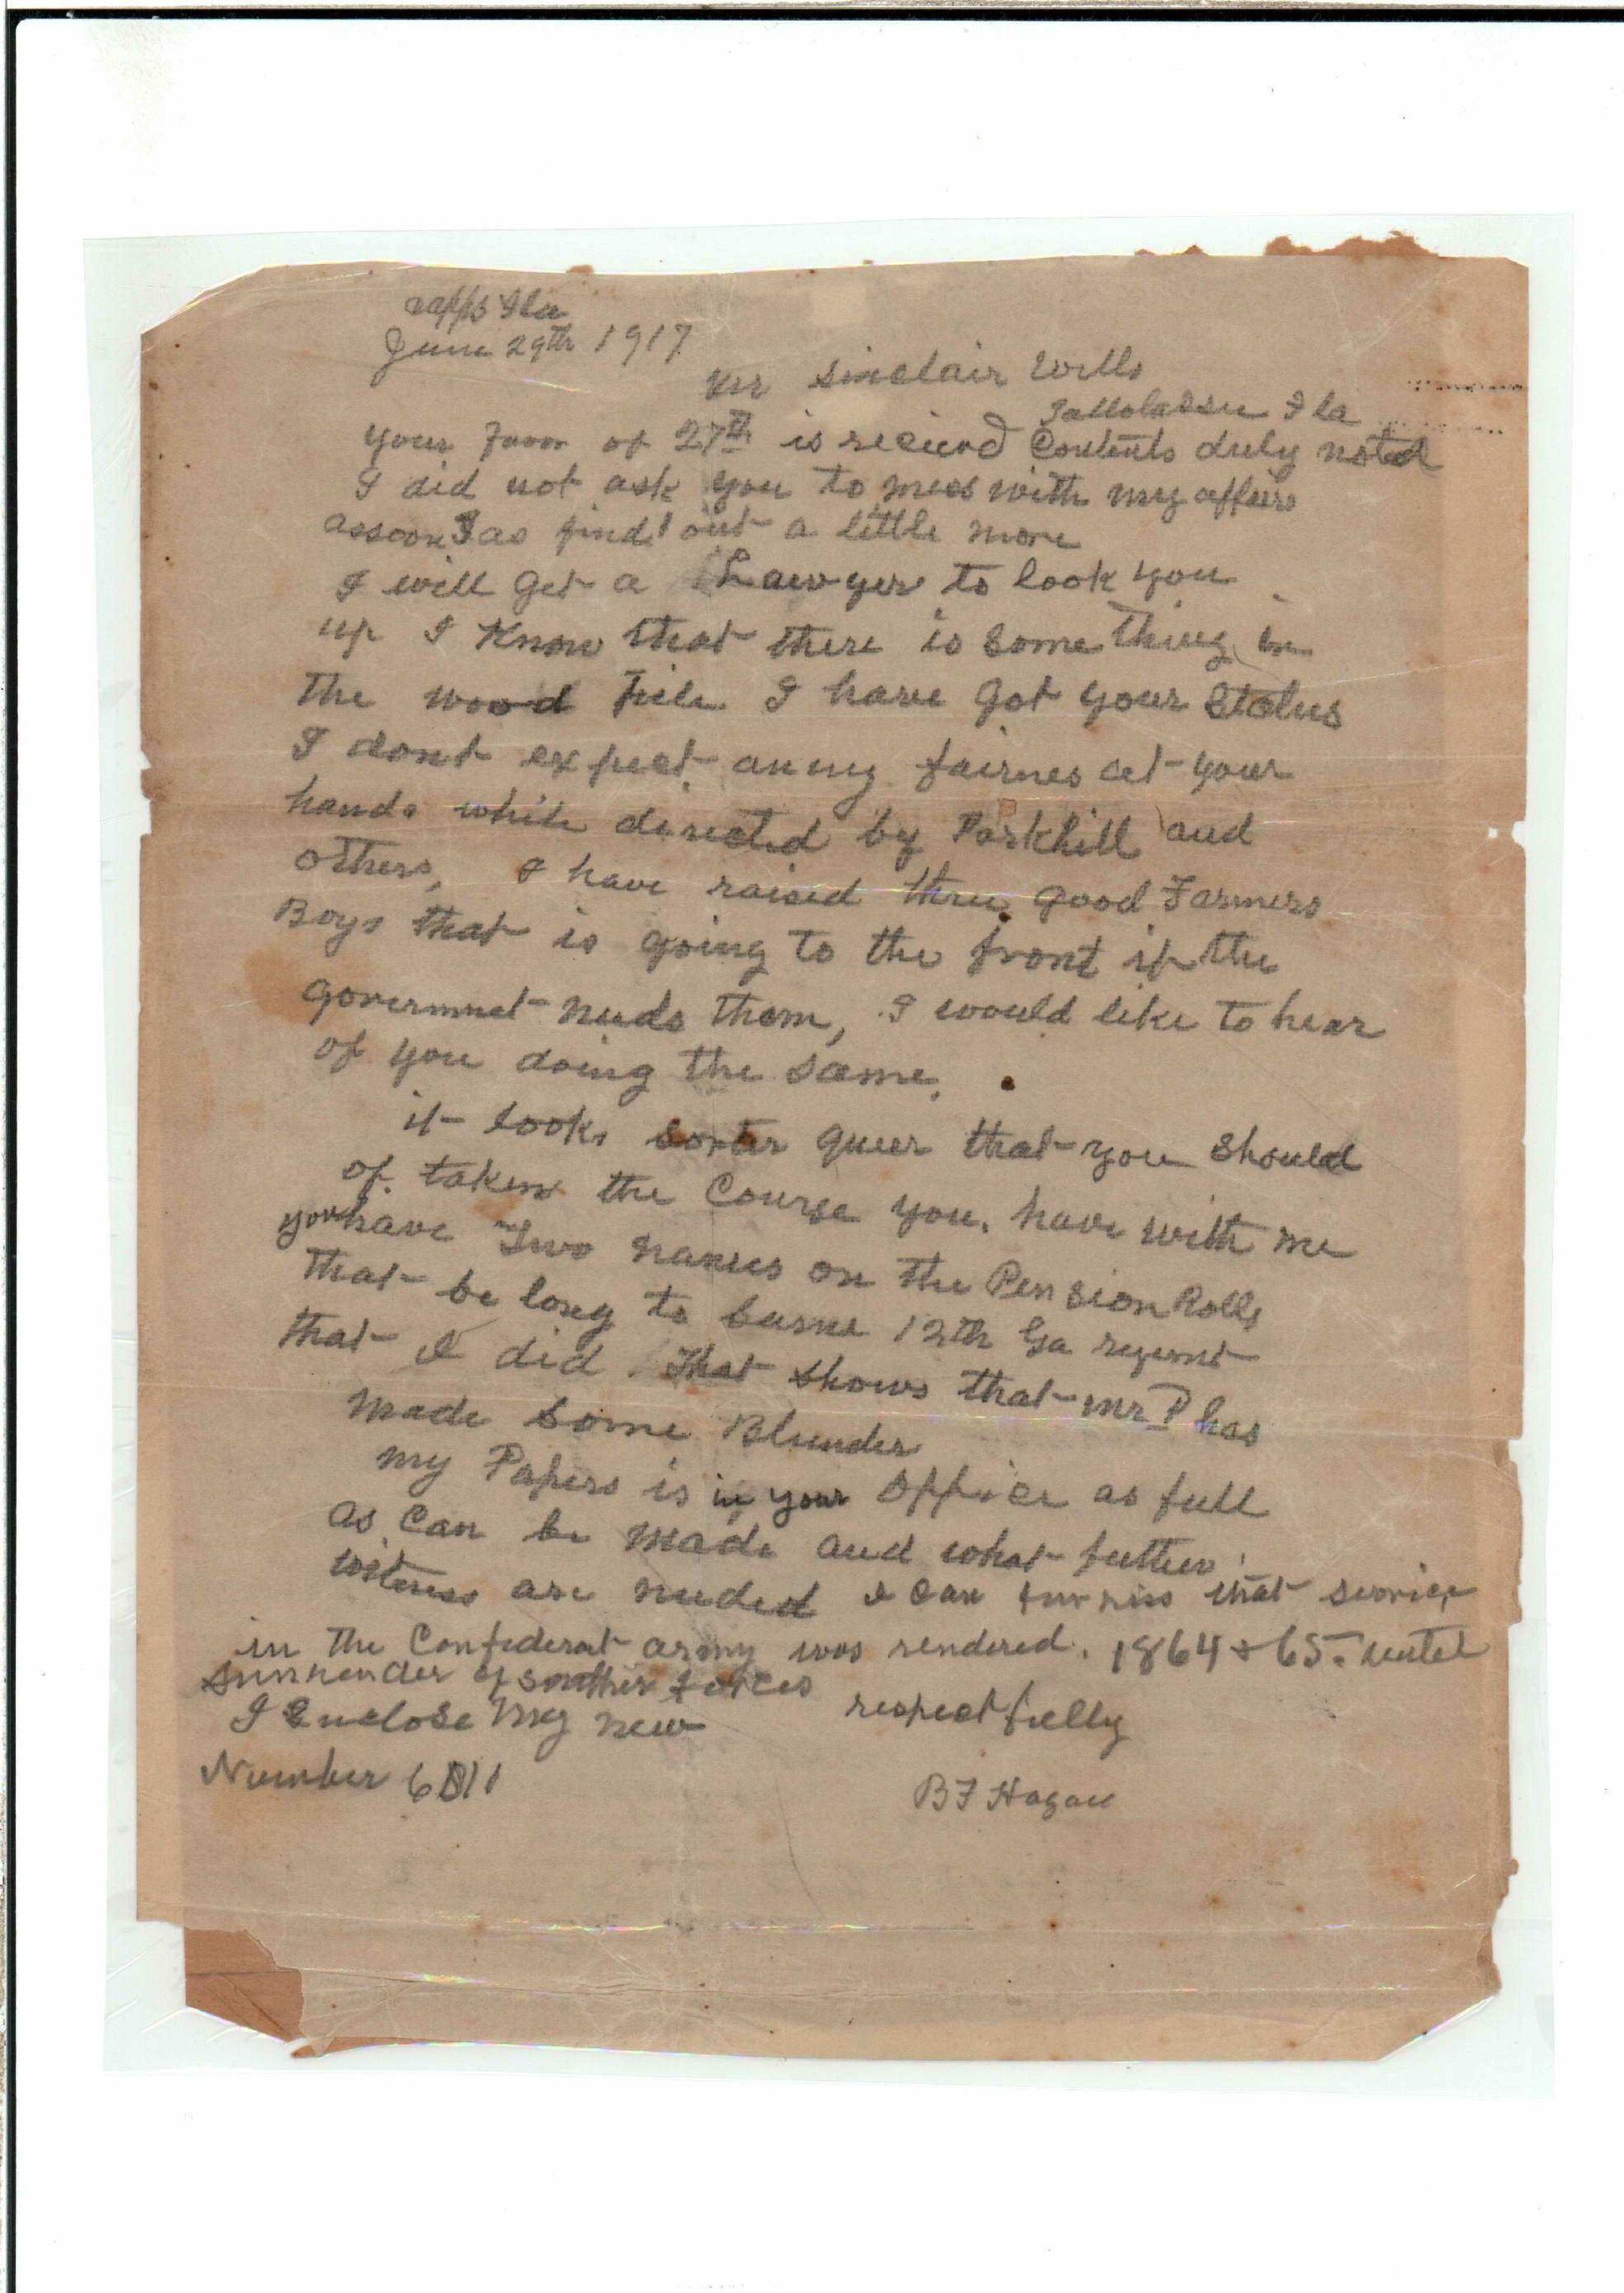 Fla
June 29th 1917
Mr Sinclair Wells
Tallolassee Fla
your Favor of 27th is recievd Contents duly noted
I did not ask you to mess with my affairs
assoon I as find out a little more
I will Get a Lawyer to look you
up I Know that there is some Thing in
The wood Pile I have Got your Status
I dont expect anny fairnes at your
hands while directed by Parkhill and
others, I have raised three good Farmers
Boys that is going to the front if the
government needs them, I would like to hear
of you doing the same.
it looks sorter queer that you should
of taken the Course you have with me
you have Two names on the Pension Rolls
that be long to 12th Ga regemt
that I did That shows that Mr P has
made some Blunder
my Papers is in your Office as full
as Can be made and what futher
witness are needed I Can furniss that service
in the Confederat army was rendered. 1864 & 65 until
surrender of souther forces
respectfully
I Enclose My new
Number 6811
B F Hagan